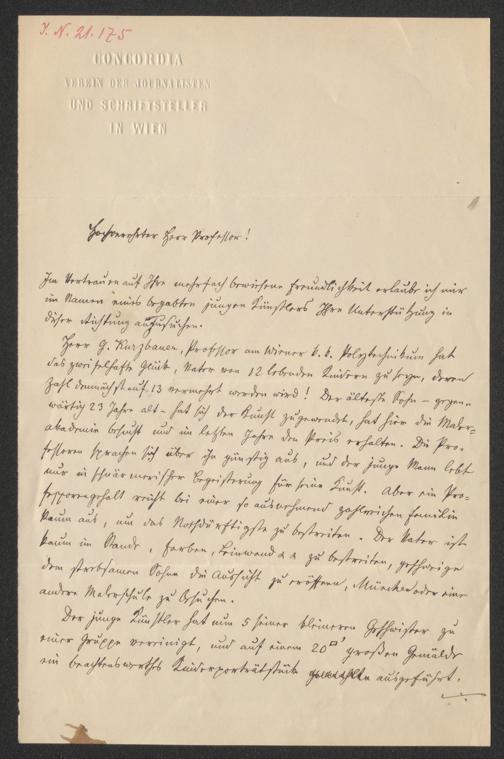 J. N. 21.175
CONCORDIA
VEREIN DER JOURNALISTEN
UND SCHRIFTSTELLER
IN WIEN
Hochverehrter Herr Professor!
Im Vertrauen auf Ihre mehrfach bewiesene Freundlichkeit erlaube ich mir
im Namen eines begabten jungen Künstlers Ihre Unterstützung in
dieser Richtung anzusuchen.
Herr G. Kurzbauer, Professor am Wiener k. k. Polytechnikum hat
das zweifelhafte Glück, Vater von 12 lebenden Kindern zu sein, deren
Zahl demnächst auf 13 vermehrt werden wird! Der älteste Sohn – gegen-
wärtig 23 Jahre alt – hat sich der Kunst zugewendet, hat hier die Maler-
akademie besucht und im letzten Jahre den Preis erhalten. Die Pro-
fessoren sprachen sich über ihn günstig aus, und der junge Mann lebt
nur in schwärmerischer Begeisterung für seine Kunst. Aber ein Pro-
fessorengehalt reicht bei einer so ausnehmend zahlreichen Familie
kaum aus, um das Nothdürftigste zu bestreiten. Der Vater ist
kaum im Stande, Farben, Leinwand zu bestreiten, geschweige
dem strebsamen Sohne die Aussicht zu eröffnen, München oder eine
andere Malerschule zu besuchen.
Der junge Künstler hat nun 5 seiner kleineren Geschwister zu
einer Gruppe vereinigt, und auf einem 20 □' großen Gemälde
ein beachtenswerthes Kinderporträtstück ausgeführt.